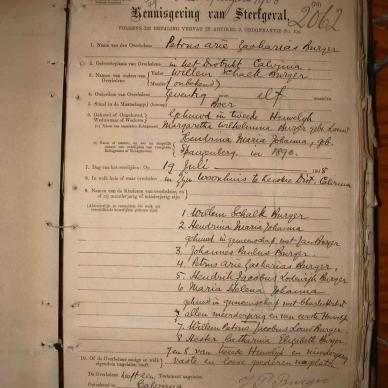 2062
Kennisgeving van Sterfgeval,
VOLGENS DE BEPALING VERVAT IN ARTIKEL 9, ORDONNANTIE No. 104.
1. Naam des Overledenen Petrus Arie Zacharias Burger
2. Geboorteplaats van Overledene in het Distrikt Calvinia
3. Namen van ouders van Overledene Vader Willem Schalk Burger
Moeder (onbekend)
4. Ouderdom van Overledene Zeventig elf maanden
5. Stand in de Maatschappij Boer
6. Gehuwd of Ongehuwd, Weduwnaar of Weduwe Gehuwd in tweede Huwelijk
Margaretha Wilhelmina Burger geb. Louw
Hendrina Maria Johanna, geb.
in 1890.
7. Dag van het overlijden: Op 19 Juli 1908
8. In welk huis of waar overleden in zijn woonhuis Dist. Calvinia
9. Namen van de Kinderen van overledene, en of zij meerderjarig of minderjarig zijn
1 Willem Schalk Burger
2 Hendrina Maria Johanna
gehuwd in gemeenschap met Jan Burger
3 Johannes Paulus Burger
4 Petrus Arie Zacharias Burger,
5 Hendrik Jacobus Lodewijk Burger
6 Maria Helena Johanna
gehuwd in gemeenschap met Charles
allen meerderjarig en van eerste Huwelijk
7 Willem Petrus Jacobus Louw Burger
8 Hester Catharina Elizabeth Burger
7 en 8 van tweede Huwelijk en minderjarig
10. Of de Overledene eenig en welk eigendom nagelaten heeft. vaste en losse goederen nagelaten
Overledene heeft een Testament nagelaten
Calvinia
Burger